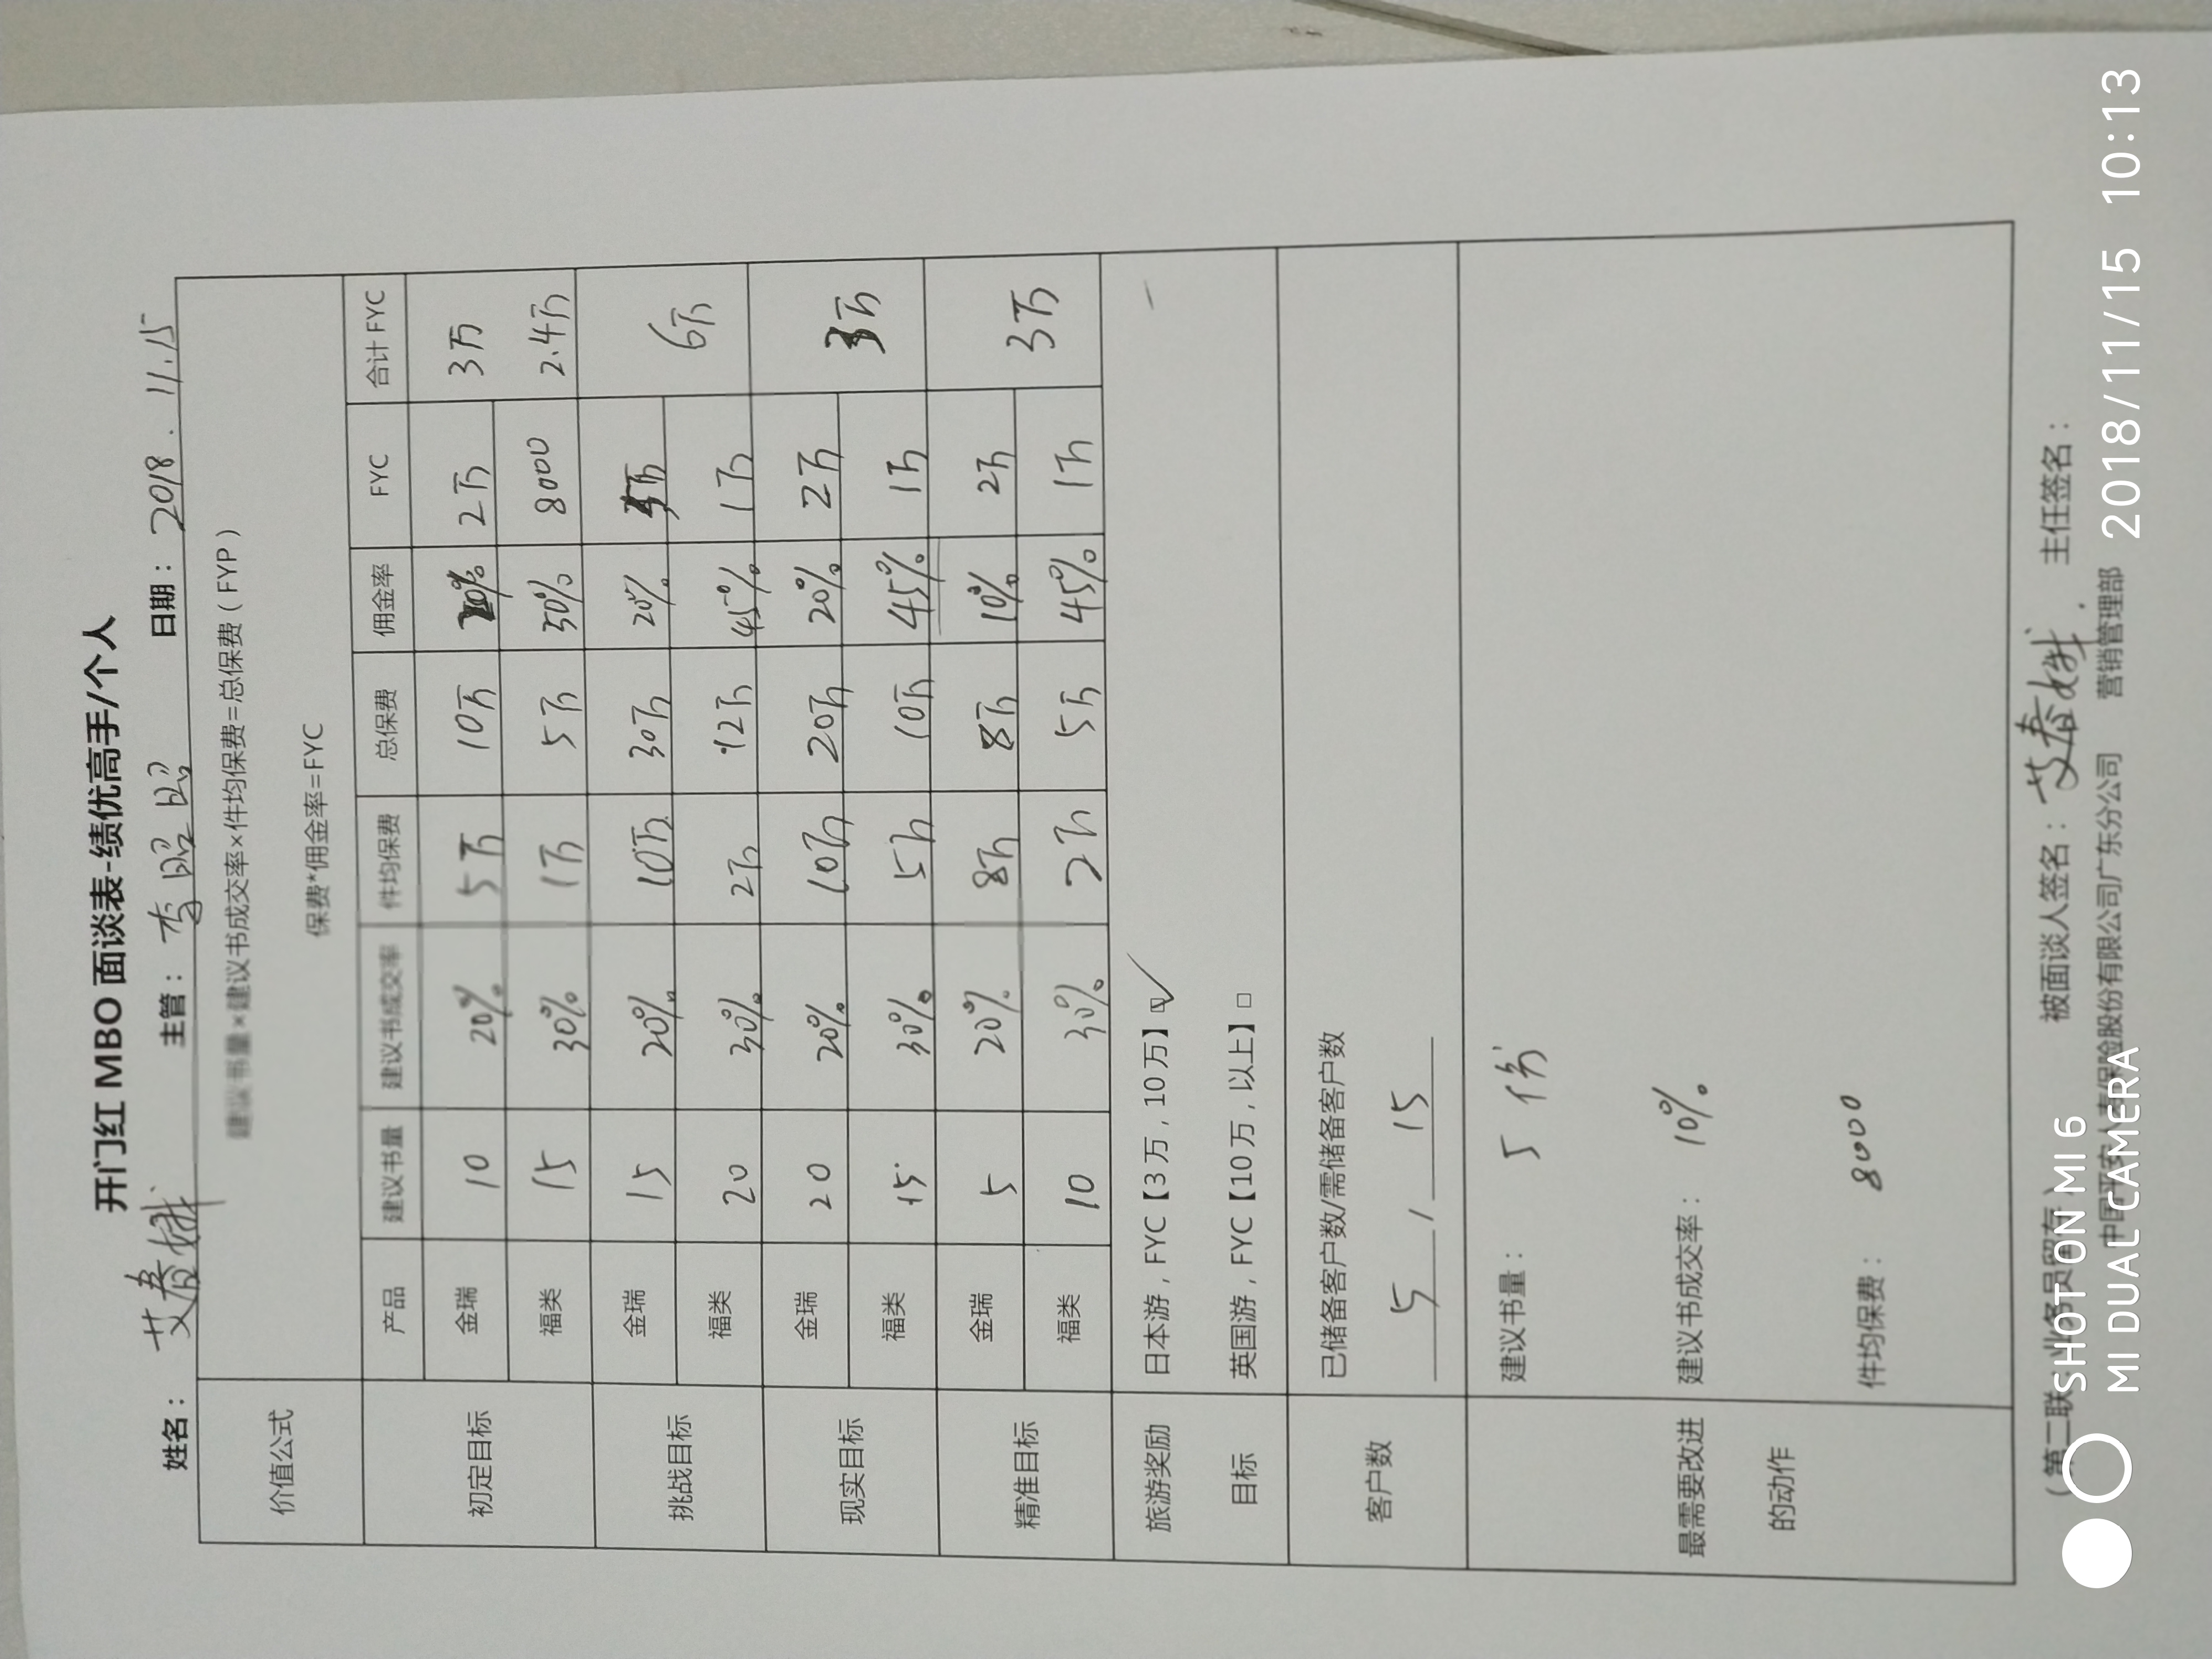 开门红 MBO 面谈表-绩优高手/个人
姓名： 艾春娥 主管： 李昭昭 日期： 2018 . 11.15
价值公式 建议书量×建议书成交率×件均保费=总保费（FYP）
保费*佣金率=FYC
产品 建议书量 建议书成交率 件均保费 总保费 佣金率 FYC 合计 FYC
初定目标 金瑞 10 20% 5万 10万 20% 2万 3万
福类 15 30% 1万 5万 50% 8000 2.4万
挑战目标 金瑞 15 20% 10万 30万 20% 5万 6万
福类 20 30% 2万 12万 45% 1万
现实目标 金瑞 20 20% 10万 20万 20% 2万 3万
福类 15 30% 5万 10万 45% 1万
精准目标 金瑞 5 20% 8万 8万 10% 2万 3万
福类 10 30% 2万 5万 45% 1万
旅游奖励 日本游，FYC【3万，10万】☑
目标 英国游，FYC【10万，以上】□
客户数 已储备客户数/需储备客户数
5 / 15
最需要改进的动作 建议书量： 5 份
建议书成交率： 10%
件均保费： 8000
（第二联：业务员留存） 被面谈人签名： 艾春娥 . 主任签名：
中国平安人寿保险股份有限公司广东分公司 营销管理部
SHOT ON MI 6
MI DUAL CAMERA 2018/11/15 10:13